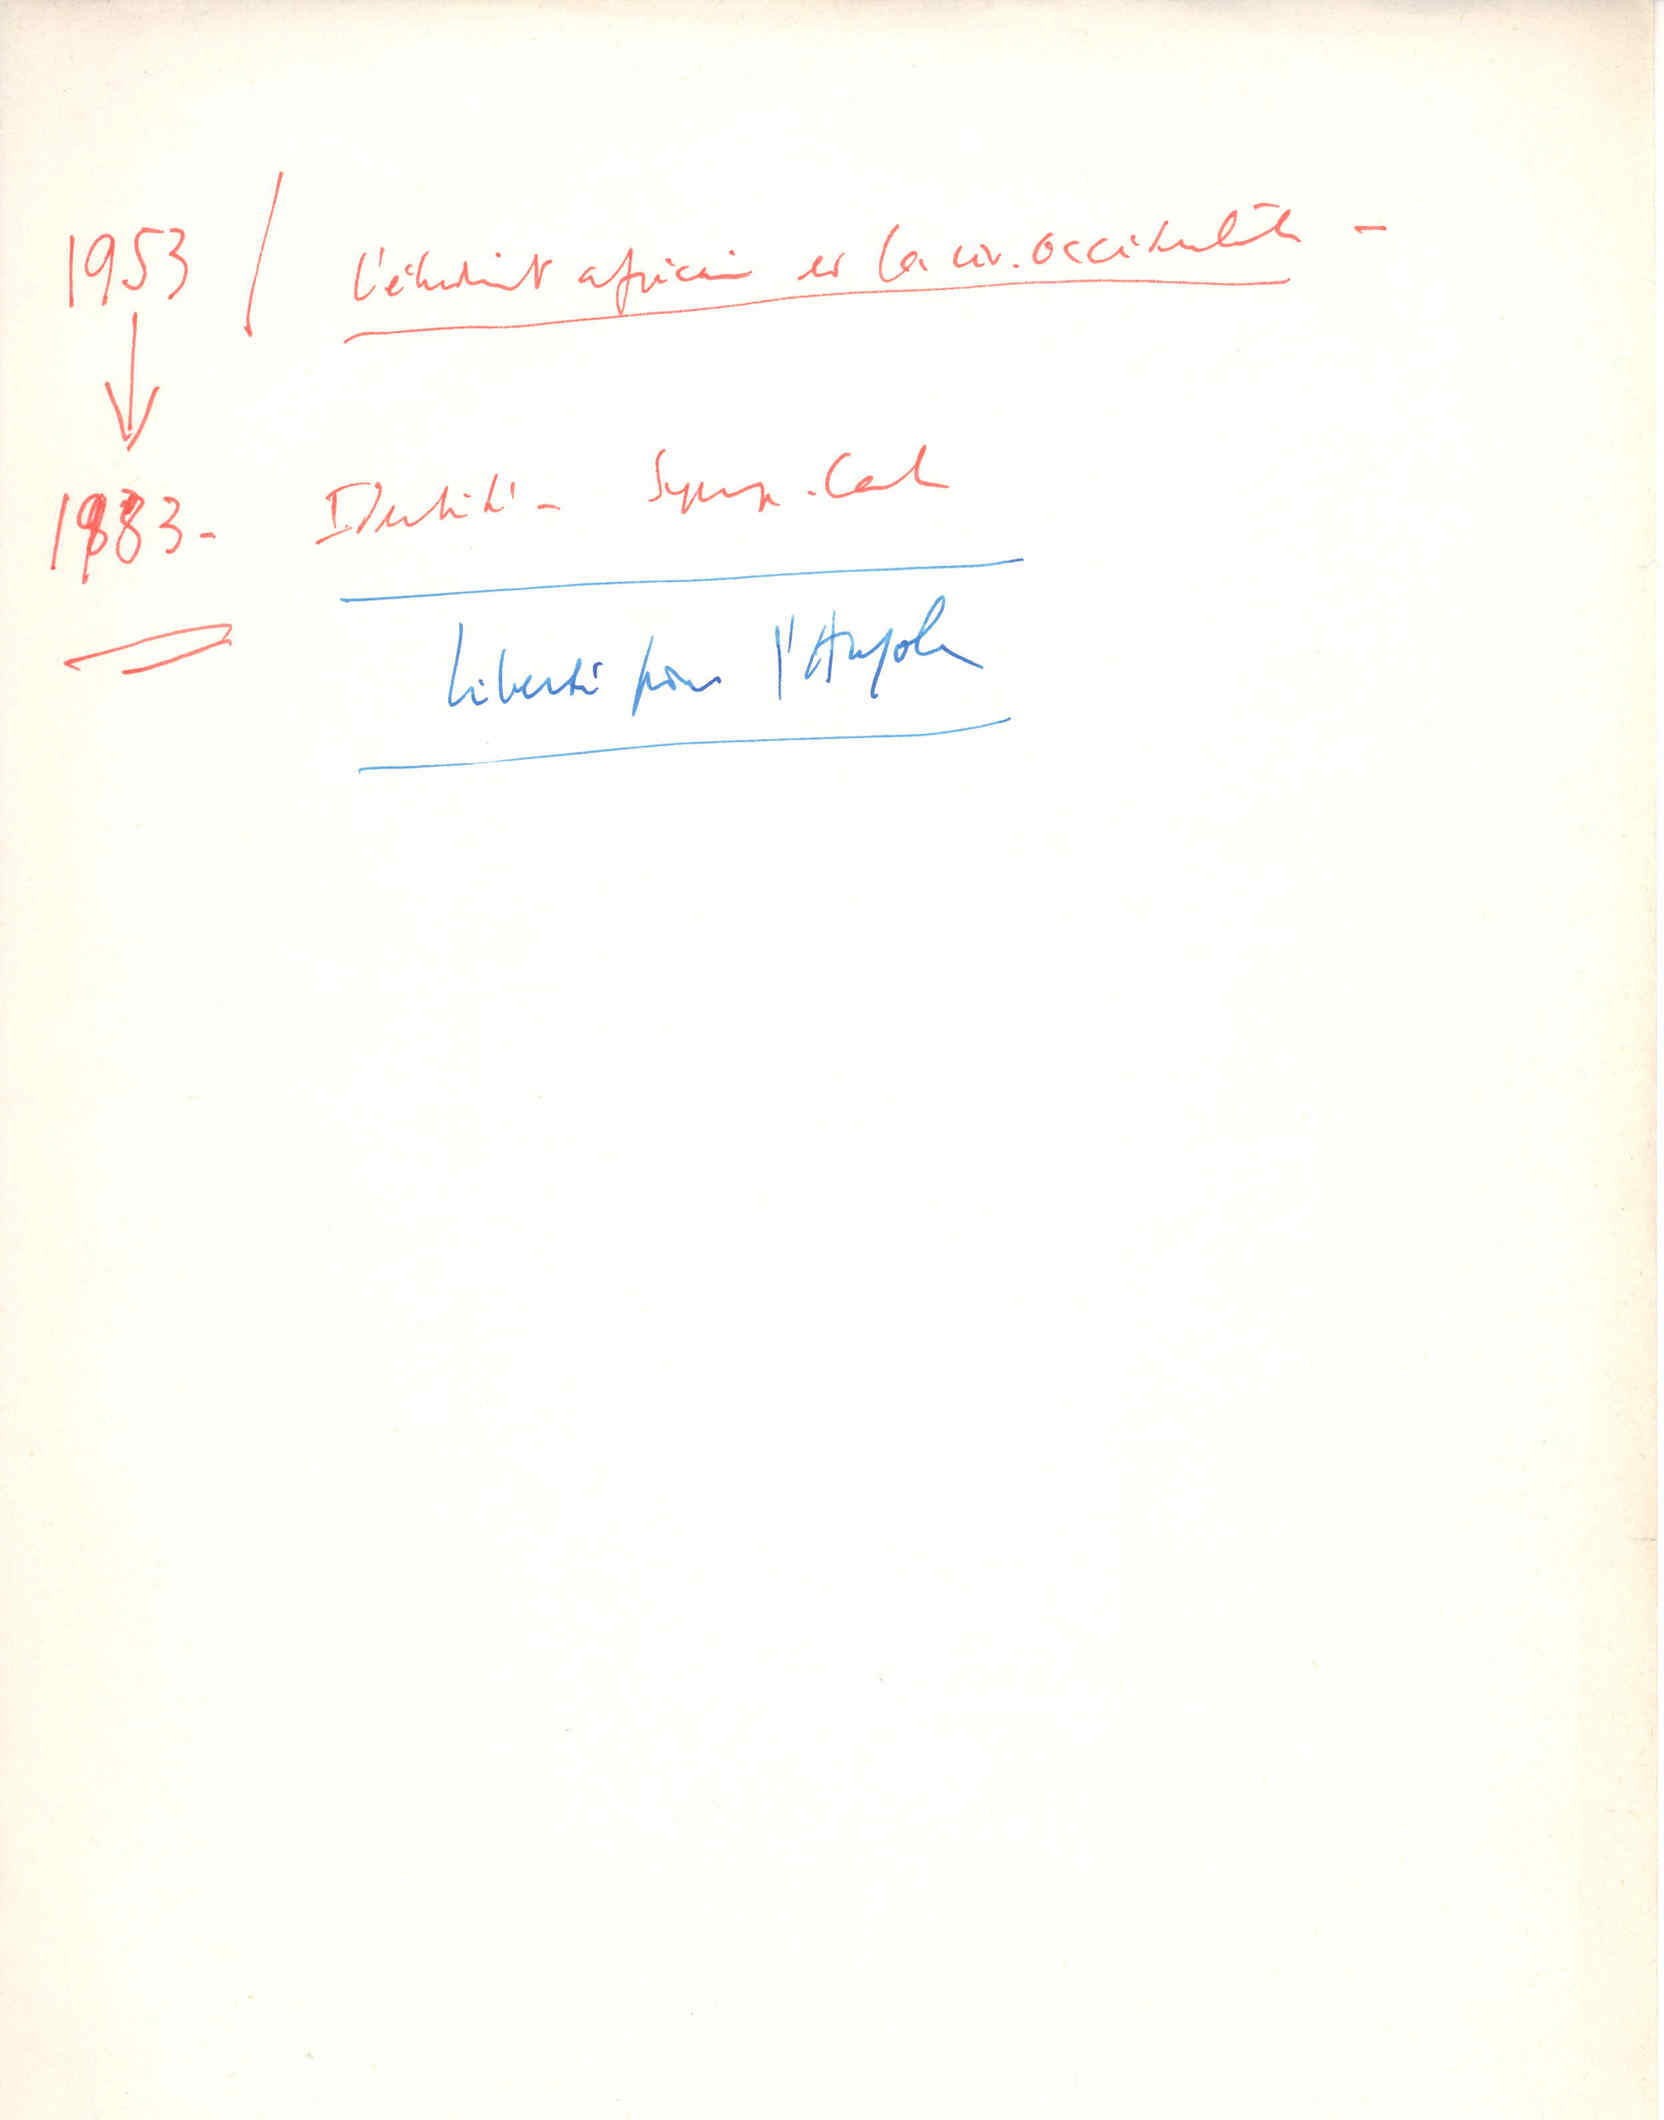 1953 / L'étudiant africain et la civ. occidentale -
1983 - Identité - Symp. Cab
Liberté pour l'Angola